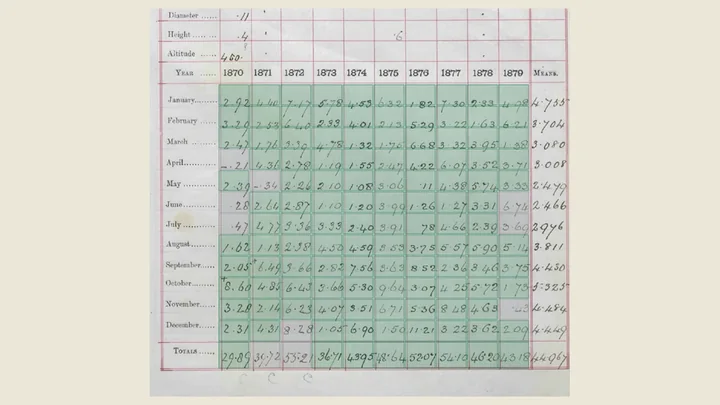 Diameter ...... .11
Height ........ .4 .6
Altitude ...... 450.
YEAR ...... 1870 1871 1872 1873 1874 1875 1876 1877 1878 1879 MEANS.
January........ 2.92 4.40 7.17 5.78 4.53 6.32 1.82 7.30 2.33 4.98 4.755
February ...... 3.20 2.58 6.40 2.33 4.01 2.13 5.29 3.22 1.63 6.21 3.704
March ...... 2.47 1.76 3.39 4.78 1.32 1.76 6.68 3.32 3.95 1.38 3.080
April......... -.21 4.36 2.78 1.19 1.55 2.47 4.22 6.07 3.52 3.71 3.008
May ...... 2.39 -.34 2.26 2.10 1.08 3.06 .11 4.38 5.74 3.33 2.479
June......... .28 2.64 2.87 1.10 1.20 3.99 1.26 1.27 3.31 6.74 2.466
July......... .47 4.77 3.36 3.33 2.40 3.91 .78 4.66 2.39 3.69 2.976
August......... 1.62 1.13 2.38 4.50 4.59 3.53 3.75 5.57 5.90 5.14 3.811
September...... 2.05 6.49 3.66 2.82 7.56 3.63 8.52 2.36 3.46 3.75 4.430
October......... 8.60 4.85 6.43 3.66 5.30 9.64 3.07 4.25 5.72 1.73 5.325
November...... 3.20 2.14 6.23 4.07 3.51 6.71 5.36 8.48 4.63 4.484
December...... 2.31 4.31 9.28 1.05 6.90 1.50 11.21 3.22 3.62 2.09 4.449
TOTALS ...... 29.89 39.72 55.21 36.71 43.95 48.64 52.07 54.10 46.20 43.18 44.967
C C C